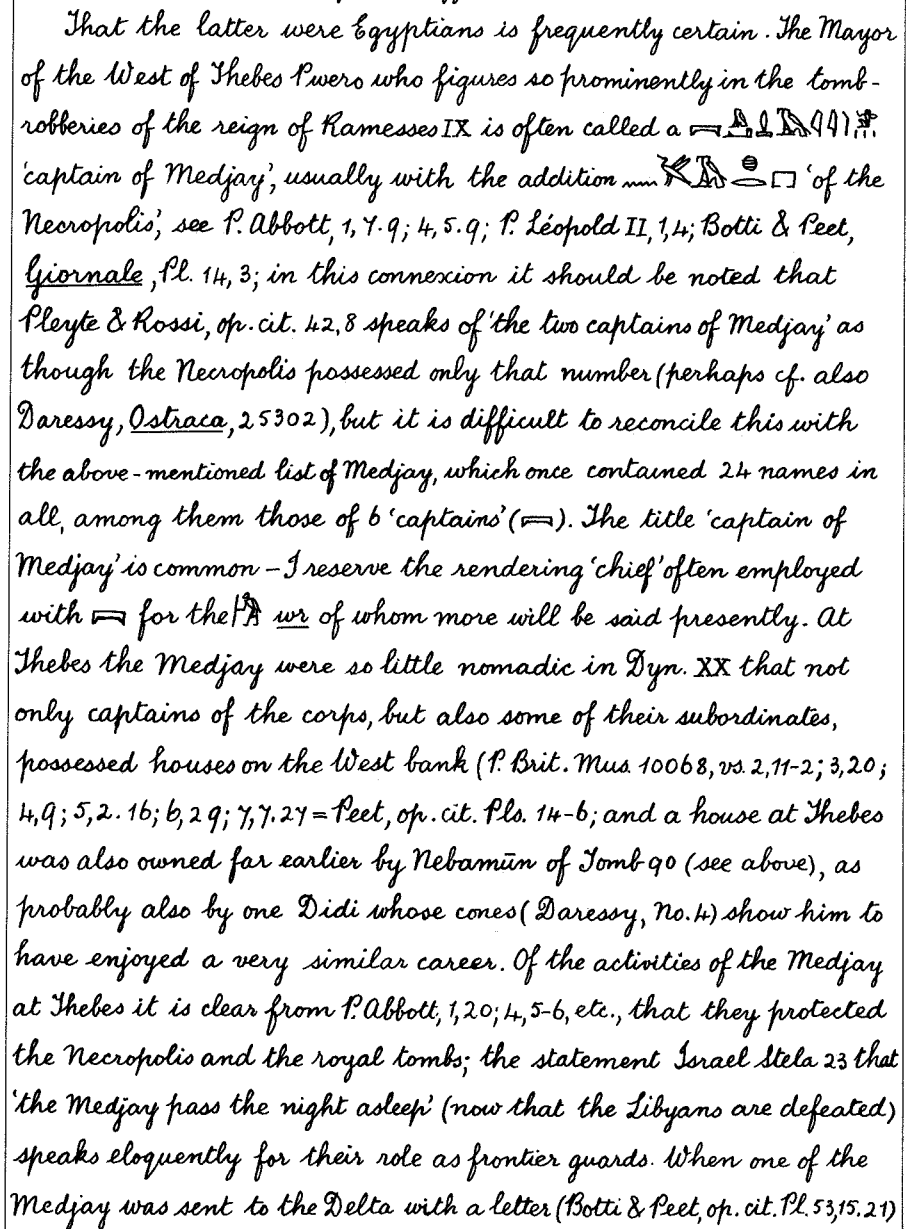 That the latter were Egyptians is frequently certain. The Mayor
of the West of Thebes Pwero who figures so prominently in the tomb-
robberies of the reign of Ramesses IX is often called a
'captain of Medjay', usually with the addition 'of the
Necropolis', see P. Abbott, 1, 7.9; 4, 5.9; P. Léopold II, 1, 4; Botti & Peet,
Giornale, Pl. 14, 3; in this connexion it should be noted that
Pleyte & Rossi, op. cit. 42,8 speaks of 'the two captains of Medjay' as
though the Necropolis possessed only that number (perhaps cf. also
Daressy, Ostraca, 25302), but it is difficult to reconcile this with
the above-mentioned list of Medjay, which once contained 24 names in
all, among them those of 6 'captains' (). The title 'captain of
Medjay' is common – I reserve the rendering 'chief' often employed
with for the wr of whom more will be said presently. At
Thebes the Medjay were so little nomadic in Dyn. XX that not
only captains of the corps, but also some of their subordinates,
possessed houses on the West bank (P. Brit. Mus. 10068, vs. 2,11-2; 3,20;
4,9; 5,2.16; 6,29; 7,7.27 = Peet, op. cit. Pls. 14-6; and a house at Thebes
was also owned far earlier by Nebamūn of Tomb 90 (see above), as
probably also by one Didi whose cones (Daressy, No. 4) show him to
have enjoyed a very similar career. Of the activities of the Medjay
at Thebes it is clear from P. Abbott, 1,20; 4,5-6, etc., that they protected
the Necropolis and the royal tombs; the statement Israel Stela 23 that
'the Medjay pass the night asleep' (now that the Libyans are defeated)
speaks eloquently for their role as frontier guards. When one of the
Medjay was sent to the Delta with a letter (Botti & Peet, op. cit. Pl. 53,15.21)